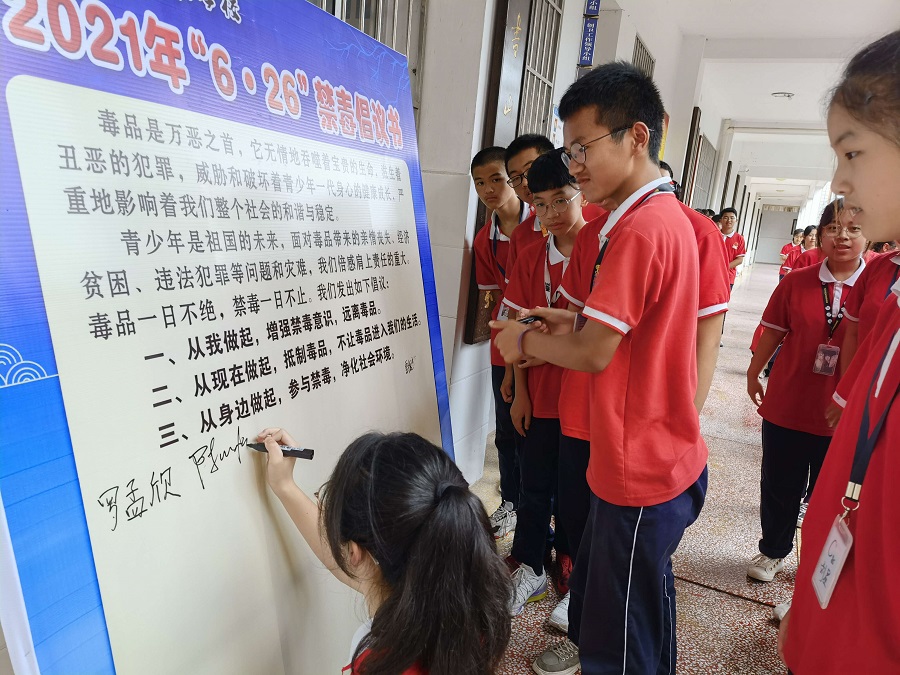 2021年“6·26”禁毒倡议书
毒品是万恶之首，它无情地吞噬着宝贵的生命，
丑恶的犯罪，威胁和破坏着青少年一代身心的健康成长，严
重地影响着我们整个社会的和谐与稳定。
青少年是祖国的未来，面对毒品带来的亲情丧失、经济
贫困、违法犯罪等问题和灾难，我们倍感肩上责任的重大。
毒品一日不绝，禁毒一日不止。我们发出如下倡议：
一、从我做起，增强禁毒意识，远离毒品。
二、从现在做起，抵制毒品，不让毒品进入我们的生活。
三、从身边做起，参与禁毒，净化社会环境。
罗孟欣